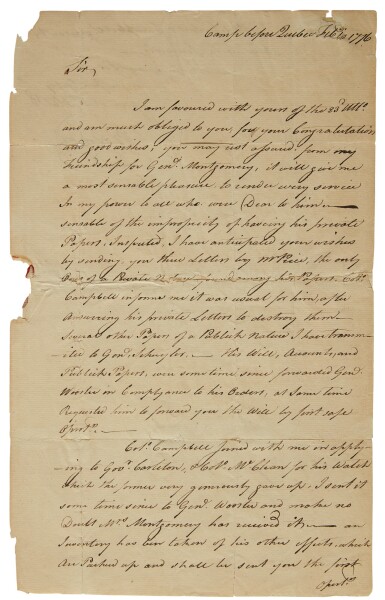 Camp before Quebec Feb. 1776
Sir,
I am favoured with yours of the 23d Ulto.
and am much obliged to you, for your Congratulation
and good wishes; you may rest assured from my
Friendship for Genl. Montgomery, it will give me
a most sensable pleasure to render every service
In my power to all who were Dear to him.—
sensable of the impropriety of haveing his private
Papers, Inspected, I have anticipated your wishes
by sending you three Letters by Mr. the only
Ones of a Private Nature found among his Papers. Colo.
Campbell informs me it was usual for him, after
Answering his private Letters to destroy them—
Several other Papers of a Publick Nature I have transm-
itted to Genl. Schuyler.— His Will, Accounts, and
Publick Papers, were some time since forwarded Genl
Wooster in Compliance to his Orders, at same time
Requested him to forward you the Will by first safe
Oport'y.—
Colo. Campbell Joined with me in apply-
ing to Govr. Carleton, & Colo. McClean for his Watch
which the former very generously gave up. I sent it
some time since to Genl. Wooster and make no
Doubt Mrs. Montgomery has received it— an
Inventory has been taken of his other effects, which
Are Packed up and shall be sent you the first
Oport'y.